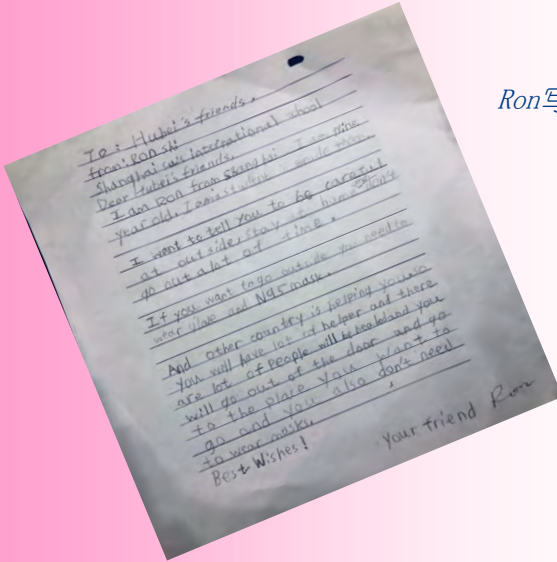 Ron写
To: Hubei's friends.
from: Ron shi
Shanghai international school
Dear Hubei's friends.
I am Ron from Shanghai. I am nine
year old. I am student
I want to tell you to be careful
at outside, stay at home don't
go out a lot of time.
If you want to go outside you need to
wear glove and N95 mask.
And other country is helping you so
you will have lot of helper and there
are lot of people will be and you
will go out of the door and go
to the place you want to
go and you also don't need
to wear masks.
Best Wishes!
your friend Ron